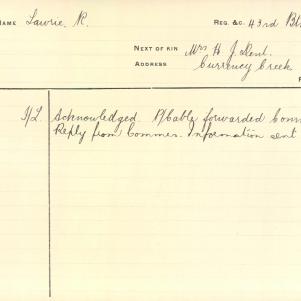 NAME Lawrie R. REG. &C. 43rd
NEXT OF KIN Mrs H. J. Dent.
ADDRESS Currency Creek
I/L. Acknowledged. P/Cable forwarded
Reply from Commrs. Information sent